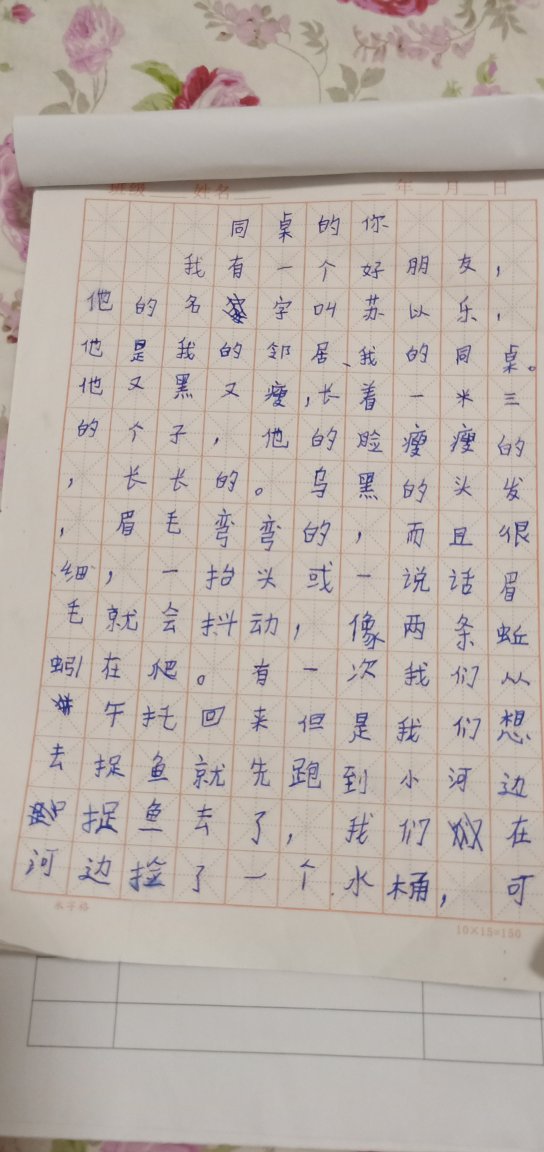 班级 姓名 年 月 日
同桌的你
我有一个好朋友，
他的名字叫苏以乐，
他是我的邻居、我的同桌。
他又黑又瘦，长着一米三
的个子，他的脸瘦瘦的
，长长的。乌黑的头发
，眉毛弯弯的，而且很
细，一抬头或一说话眉
毛就会抖动，像两条蚯
蚓在爬。有一次我们从
午托回来但是我们想
去捉鱼就先跑到小河边
捉鱼去了，我们在
河边捡了一个水桶，可
米字格 10×15=150